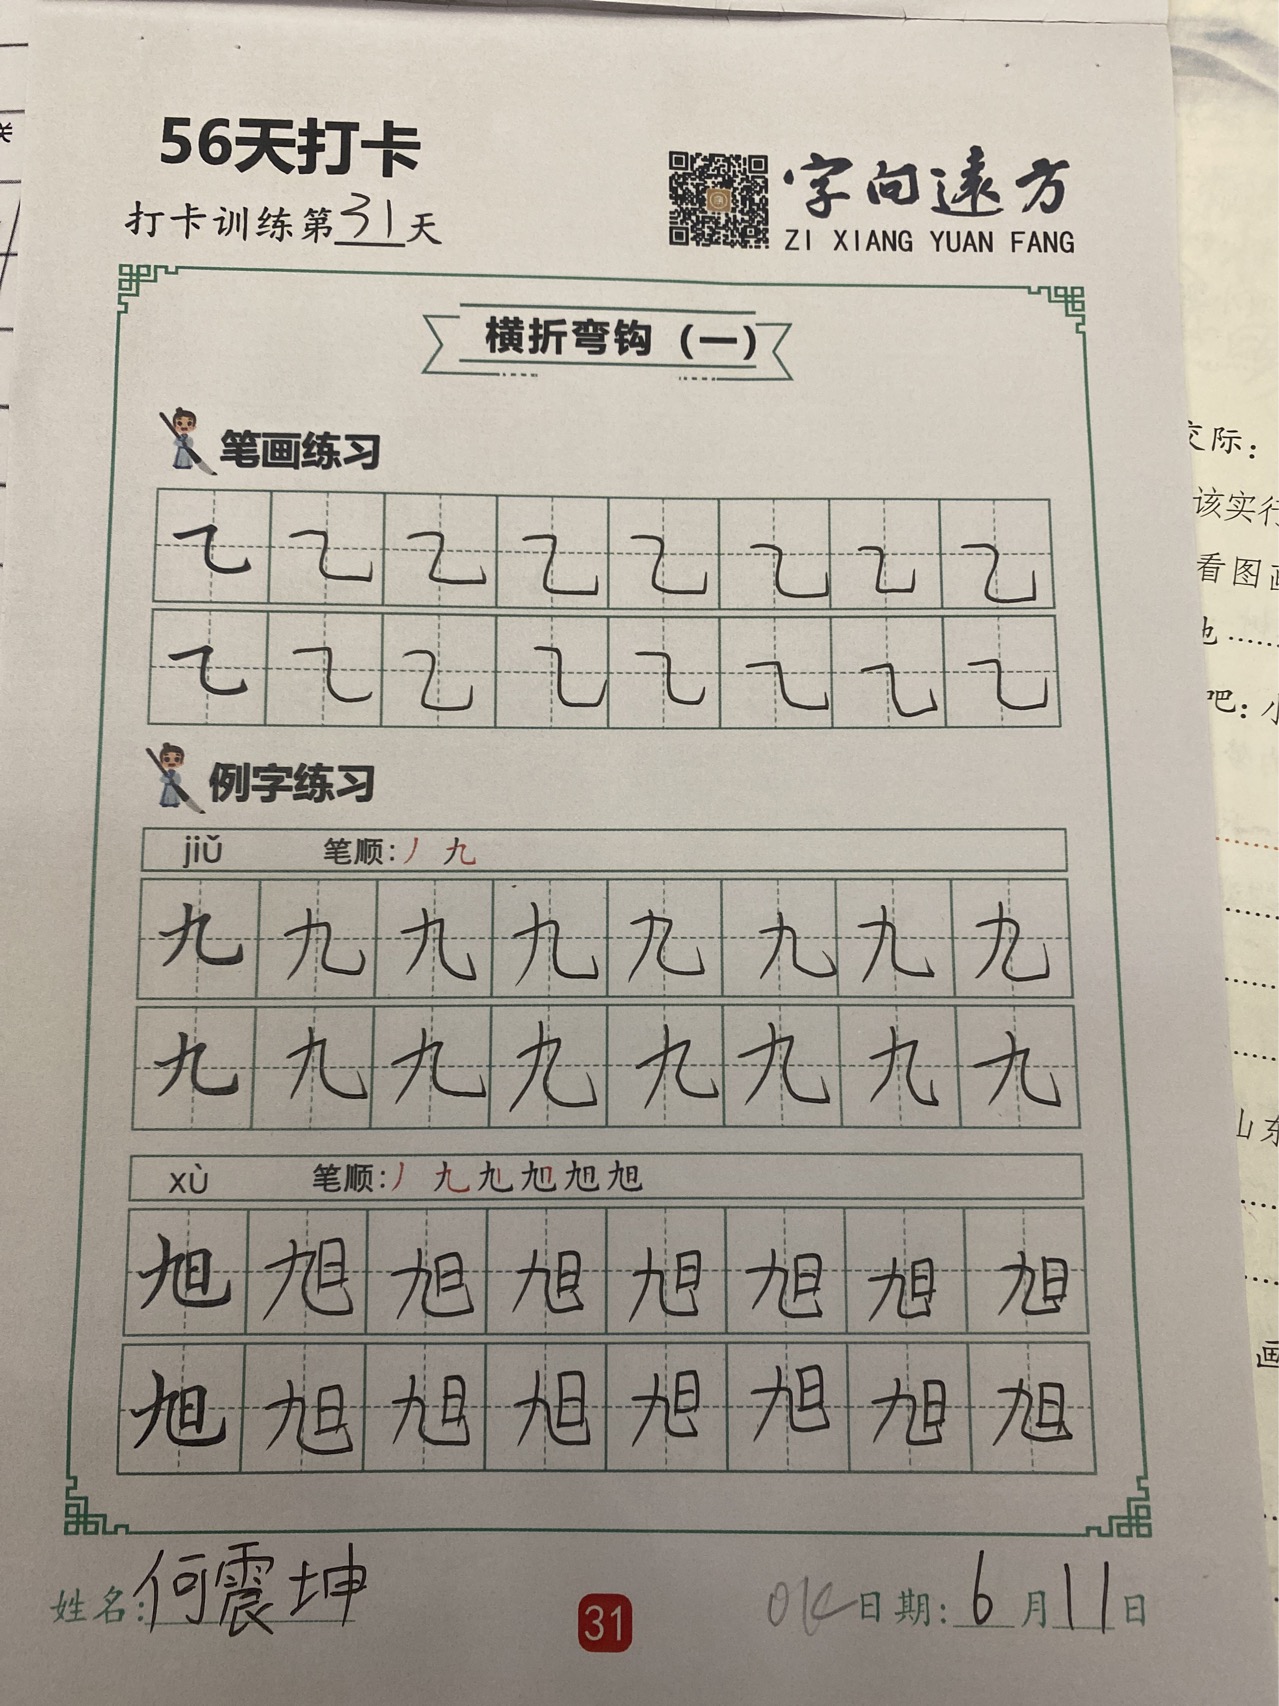 56天打卡
打卡训练第31天
字向遠方
ZI XIANG YUAN FANG
横折弯钩（一）
笔画练习
㇈ ㇈ ㇈ ㇈ ㇈ ㇈ ㇈ ㇈
㇈ ㇈ ㇈ ㇈ ㇈ ㇈ ㇈ ㇈
例字练习
jiǔ 笔顺:丿 九
九 九 九 九 九 九 九 九
九 九 九 九 九 九 九 九
xù 笔顺:丿 九 九 旭 旭 旭
旭 旭 旭 旭 旭 旭 旭 旭
旭 旭 旭 旭 旭 旭 旭 旭
姓名:何震坤
31
OK
日期:6月11日
交际:
该实行
看图画
吧:小
山东
画